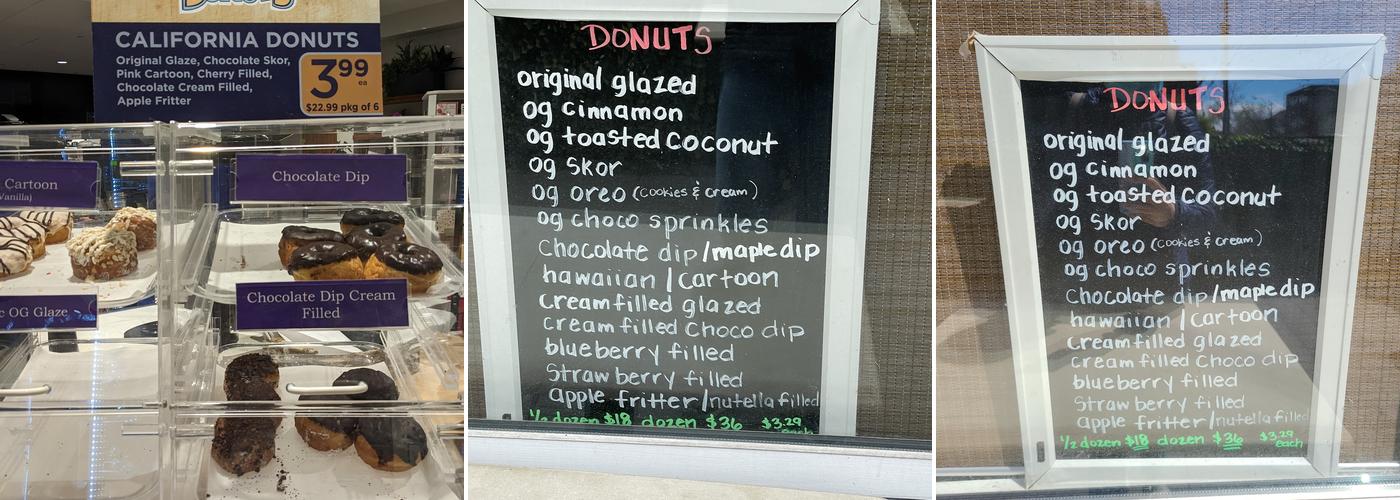 CALIFORNIA DONUTS
Original Glaze, Chocolate Skor,
Pink Cartoon, Cherry Filled,
Chocolate Cream Filled,
Apple Fritter
3 99
ea
$22.99 pkg of 6
Cartoon
Vanilla)
Chocolate Dip
OG Glaze
Chocolate Dip Cream
Filled
DONUTS
original glazed
og cinnamon
og toasted coconut
og Skor
og oreo (cookies & cream)
og choco sprinkles
Chocolate dip/maple dip
hawaiian / cartoon
cream filled glazed
cream filled choco dip
blueberry filled
Strawberry filled
apple fritter/nutella filled
1/2 dozen $18 dozen $36 $3.29
each
DONUTS
original glazed
og cinnamon
og toasted coconut
og Skor
og oreo (cookies & cream)
og choco sprinkles
Chocolate dip/maple dip
hawaiian / cartoon
cream filled glazed
cream filled Choco dip
blueberry filled
Strawberry filled
apple fritter/nutella filled
1/2 dozen $18 dozen $36 $3.29
each